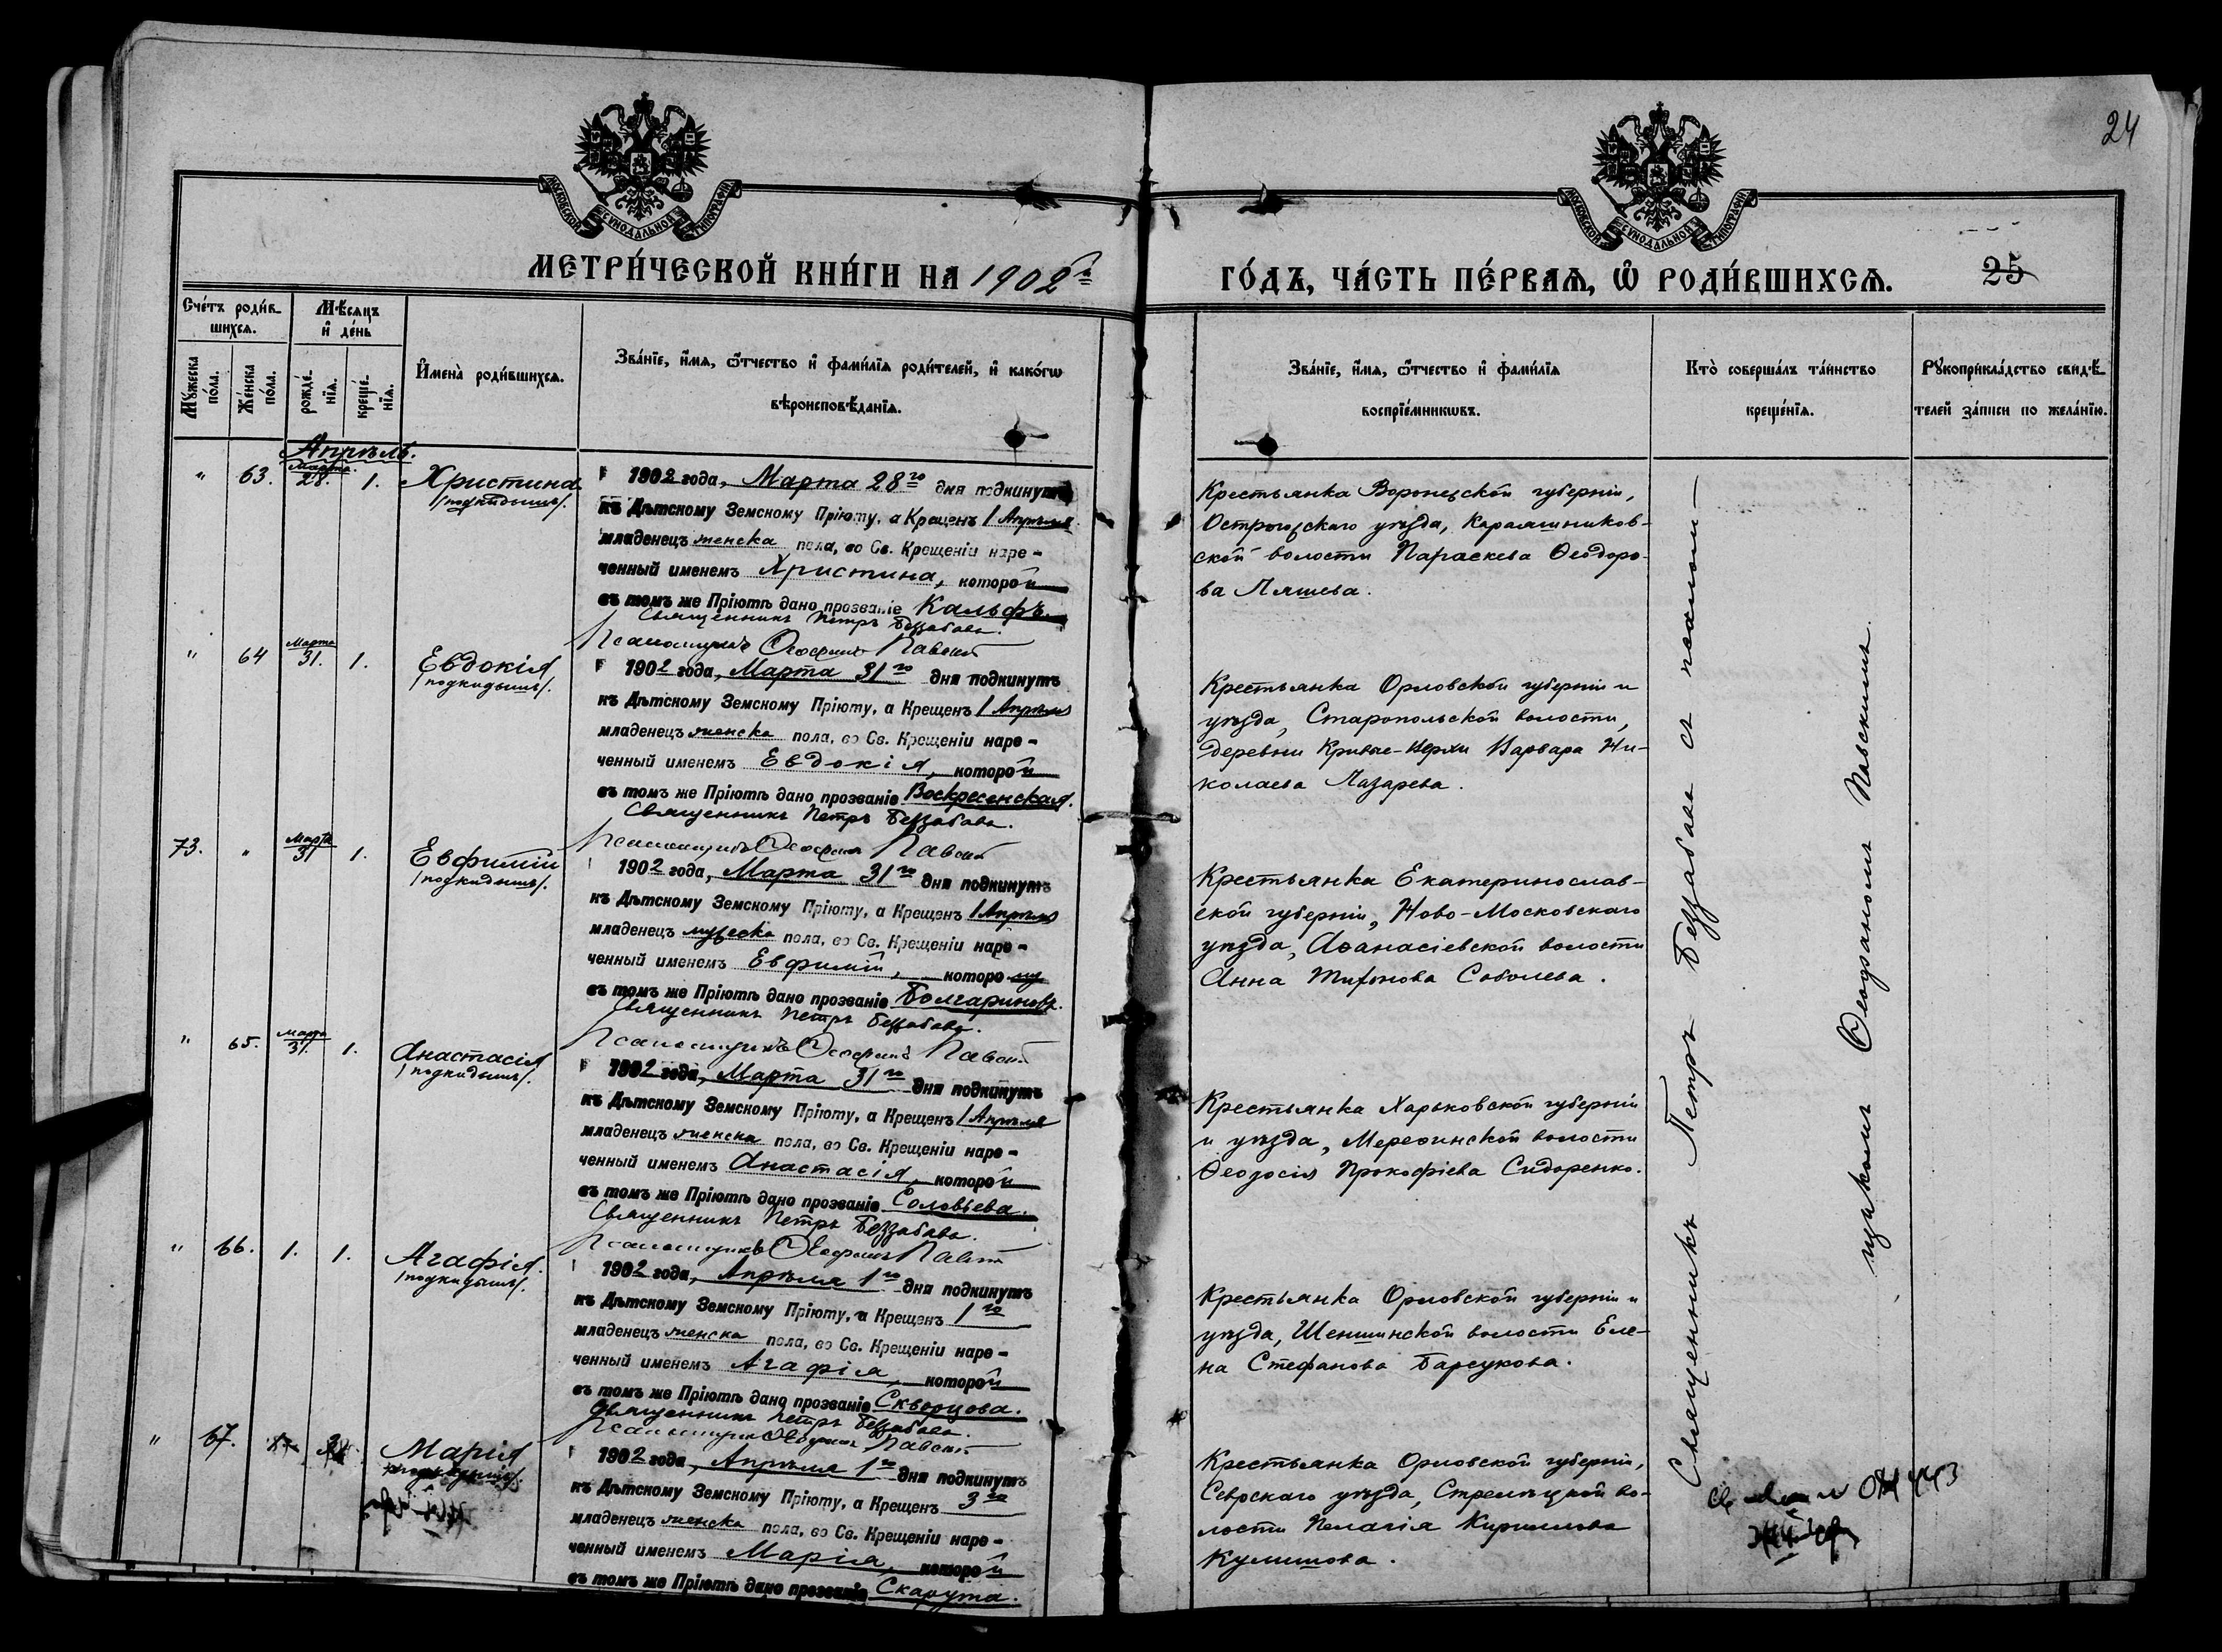 24
МОСКОВСКОЙ СѴНОДАЛЬНОЙ ТИПОГРАФІИ
МОСКОВСКОЙ СѴНОДАЛЬНОЙ ТИПОГРАФІИ
МЕТРИ́ЧЕСКОЙ КНИ́ГИ НА 1902й
ГО́ДЪ, ЧА́СТЬ ПЕ́РВАѦ, Ѡ҆ РОДИ́ВШИХСѦ.
25
Сче́тъ роди́в-
шихсѧ.
Мѣ́сѧцъ
и҆ де́нь
Мꙋ́жеска по́ла.
Же́нска по́ла.
рожде́-нїѧ.
креще́-нїѧ.
И҆мена̀ роди́вшихсѧ.
Зва́нїе, и҆́мѧ, ѻ҆́тчество и҆ фами́лїѧ роди́телей, и҆ како́гѡ
вѣроисповѣ́данїѧ.
Зва́нїе, и҆́мѧ, ѻ҆́тчество и҆ фами́лїѧ
воспрїе́мникѡвъ.
Кто̀ соверша́лъ та́инство
креще́нїѧ.
Рꙋкоприкла́дство свидѣ́-
телей за́писи по жела́нїю.
Апрѣль.
" 63. Марта 28. 1. Христина
/подкидышъ/.
1902 года, Марта 28го дня подкинутъ
къ Дѣтскому Земскому Пріюту, а Крещенъ 1 Апрѣля
младенецъ женска пола, во Св. Крещеніи наре-
ченный именемъ Христина, которой
въ томъ же Пріютѣ дано прозваніе Кальфъ.
Священникъ Петръ Беззабава.
Псаломщикъ Павскій
Крестьянка Воронежской губерніи,
Острогожскаго уѣзда, Караяшников-
ской волости Параскева Ѳеодоро-
ва Ляшева.
" 64 Марта 31. 1. Евдокія
/подкидышъ/.
1902 года, Марта 31го дня подкинутъ
къ Дѣтскому Земскому Пріюту, а Крещенъ 1 Апрѣля
младенецъ женска пола, во Св. Крещеніи наре-
ченный именемъ Евдокія, которой
въ томъ же Пріютѣ дано прозваніе Воскресенская.
Священникъ Петръ Беззабава.
Псаломщикъ Павскій
Крестьянка Орловской губерніи и
уѣзда, Старопольской волости,
деревни Кривые-Верхи Варвара Ни-
колаева Лазарева.
73. " Марта 31 1. Евфимій
/подкидышъ/.
1902 года, Марта 31го дня подкинутъ
къ Дѣтскому Земскому Пріюту, а Крещенъ 1 Апрѣля
младенецъ мужеска пола, во Св. Крещеніи наре-
ченный именемъ Евфимій, которому
въ томъ же Пріютѣ дано прозваніе Болгариновъ.
Священникъ Петръ Беззабава.
Псаломщикъ Павскій
Крестьянка Екатеринослав-
ской губерніи, Ново-Московскаго
уѣзда, Аѳанасіевской волости
Анна Тихонова Соболева.
" 65. Марта 31. 1. Анастасія
/подкидышъ/.
1902 года, Марта 31го дня подкинутъ
къ Дѣтскому Земскому Пріюту, а Крещенъ 1 Апрѣля
младенецъ женска пола, во Св. Крещеніи наре-
ченный именемъ Анастасія, которой
въ томъ же Пріютѣ дано прозваніе Соловьева.
Священникъ Петръ Беззабава.
Псаломщикъ Павскій
Крестьянка Харьковской губерніи
и уѣзда, Мерефинской волости
Ѳеодосія Прокофіева Сидоренко.
" 66. 1. 1. Агафія.
/подкидышъ/.
1902 года, Апрѣля 1го дня подкинутъ
къ Дѣтскому Земскому Пріюту, а Крещенъ 1го
младенецъ женска пола, во Св. Крещеніи наре-
ченный именемъ Агафія, которой
въ томъ же Пріютѣ дано прозваніе Скворцова.
Священникъ Петръ Беззабава.
Псаломщикъ Павскій
Крестьянка Орловской губерніи и
уѣзда, Шеншинской волости Еле-
на Стефанова Барсукова.
" 67. Марія
1902 года, Апрѣля 1го дня подкинутъ
къ Дѣтскому Земскому Пріюту, а Крещенъ 3го
младенецъ женска пола, во Св. Крещеніи наре-
ченный именемъ Марія, которой
въ томъ же Пріютѣ дано прозваніе Скарута.
Крестьянка Орловской губерніи,
Сѣвскаго уѣзда, Стрелецкой во-
лости Пелагія Кириллова
Кулешова.
Священникъ Петръ Беззабава съ псаломщикомъ
Павскимъ.